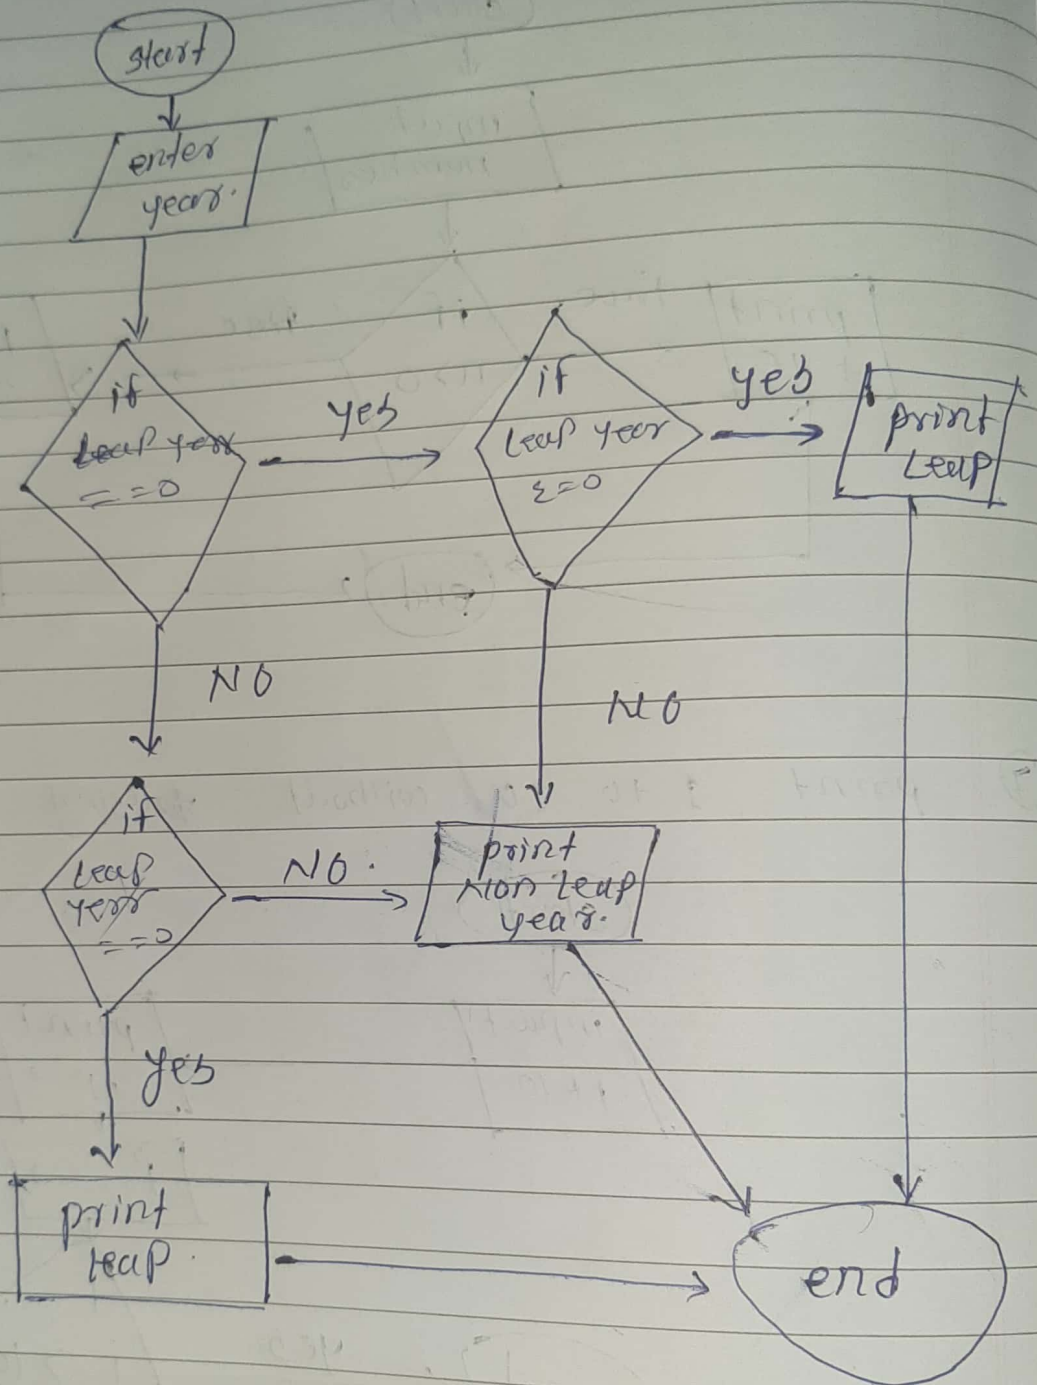 start
enter
year.
if
Leap year
= =0
yes
if
Leap year
=0
yes
print
Leap
NO
NO
if
Leap
year
= =0
NO.
print
Non Leap
year.
yes
print
Leap.
end